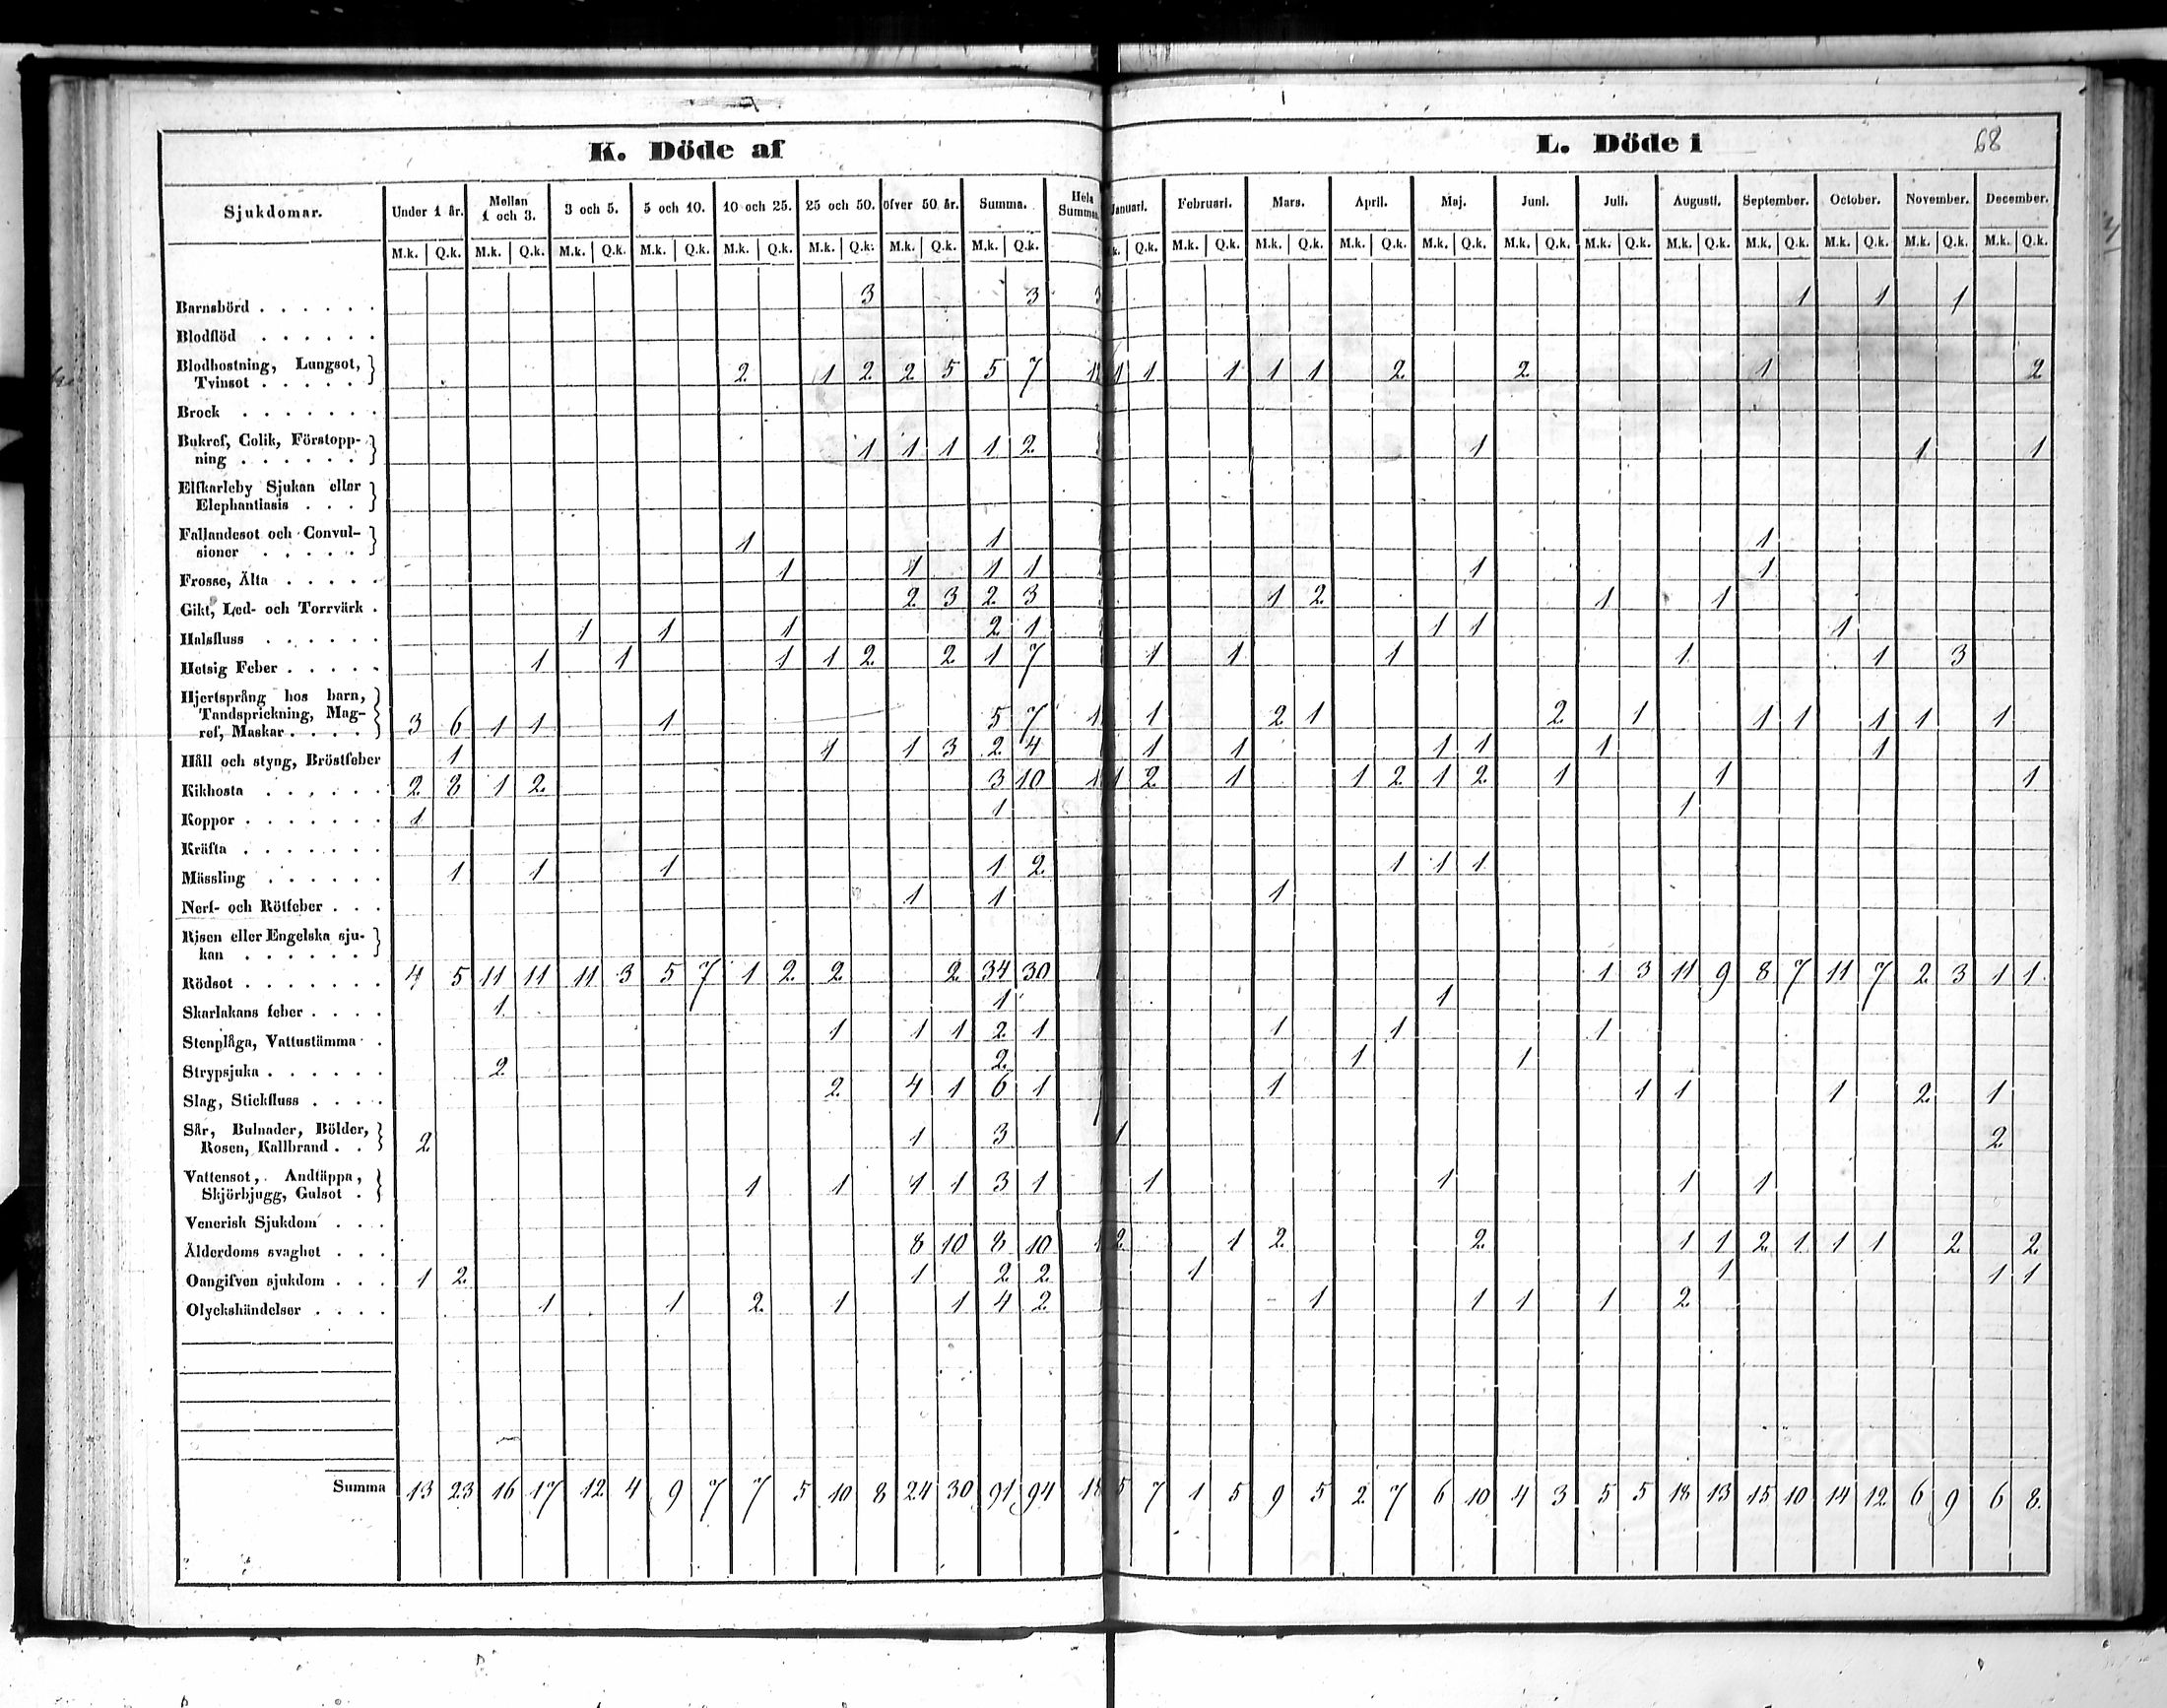 K. Döde af
L. Döde i
68
Sjukdomar. Under 1 år. Mellan 1 och 3. 3 och 5. 5 och 10. 10 och 25. 25 och 50. öfver 50 år. Summa. Hela Summan. Januari. Februari. Mars. April. Maj. Juni. Juli. Augusti. September. October. November. December.
M.k. Q.k. M.k. Q.k. M.k. Q.k. M.k. Q.k. M.k. Q.k. M.k. Q.k. M.k. Q.k. M.k. Q.k. k. Q.k. M.k. Q.k. M.k. Q.k. M.k. Q.k. M.k. Q.k. M.k. Q.k. M.k. Q.k. M.k. Q.k. M.k. Q.k. M.k. Q.k. M.k. Q.k. M.k. Q.k.
Barnsbörd . . . . . . 3 3 3 1 1 1
Blodflöd . . . . . .
Blodhostning, Lungsot,
Tvinsot . . . . . 2 1 2 2 5 5 7 1 1 1 1 1 1 2 2 1 2
Brock . . . . . . .
Bukref, Colik, Förstopp-
ning . . . . . . 1 1 1 1 2 1 1 1
Elfkarleby Sjukan eller
Elephantiasis . . .
Fallandesot och Convul-
sioner . . . . . 1 1 1
Frosse, Älta . . . . . 1 1 1 1 1 1
Gikt, Led- och Torrvärk . 2 3 2 3 1 2 1 1
Halsfluss . . . . . . 1 1 1 2 1 1 1 1
Hetsig Feber . . . . . 1 1 1 1 2 2 1 7 1 1 1 1 1 3
Hjertsprång hos barn,
Tandsprickning, Mag-
ref, Maskar . . . . 3 6 1 1 1 5 7 1 1 2 1 2 1 1 1 1 1 1
Håll och styng, Bröstfeber 1 1 1 3 2 4 1 1 1 1 1 1
Kikhosta . . . . . . 2 8 1 2 3 10 1 1 2 1 1 2 1 2 1 1 1
Koppor . . . . . . . 1 1 1
Kräfta . . . . . . .
Mässling . . . . . . 1 1 1 1 2 1 1 1
Nerf- och Rötfeber . . . 1 1 1
Risen eller Engelska sju-
kan . . . . . .
Rödsot . . . . . . . 4 5 11 11 11 3 5 7 1 2 2 2 34 30 1 3 11 9 8 7 11 7 2 3 1 1
Skarlakans feber . . . . 1 1 1
Stenplåga, Vattustämma . 1 1 1 2 1 1 1 1
Strypsjuka . . . . . . 2 2 1 1
Slag, Stickfluss . . . . 2 4 1 6 1 1 1 1 1 2 1
Sår, Bulnader, Bölder,
Rosen, Kallbrand . . 2 1 3 1 2
Vattensot, Andtäppa,
Skjörbjugg, Gulsot . 1 1 1 1 3 1 1 1 1 1
Venerisk Sjukdom . . .
Ålderdoms svaghet . . . 8 10 8 10 1 2 1 2 2 1 1 2 1 1 1 2 2
Oangifven sjukdom . . . 1 2 1 2 2 1 1 1 1
Olyckshändelser . . . . 1 1 2 1 1 4 2 1 1 1 1 2
Summa 13 23 16 17 12 4 9 7 7 5 10 8 24 30 91 94 18 5 7 1 5 9 5 2 7 6 10 4 3 5 5 18 13 15 10 14 12 6 9 6 8.